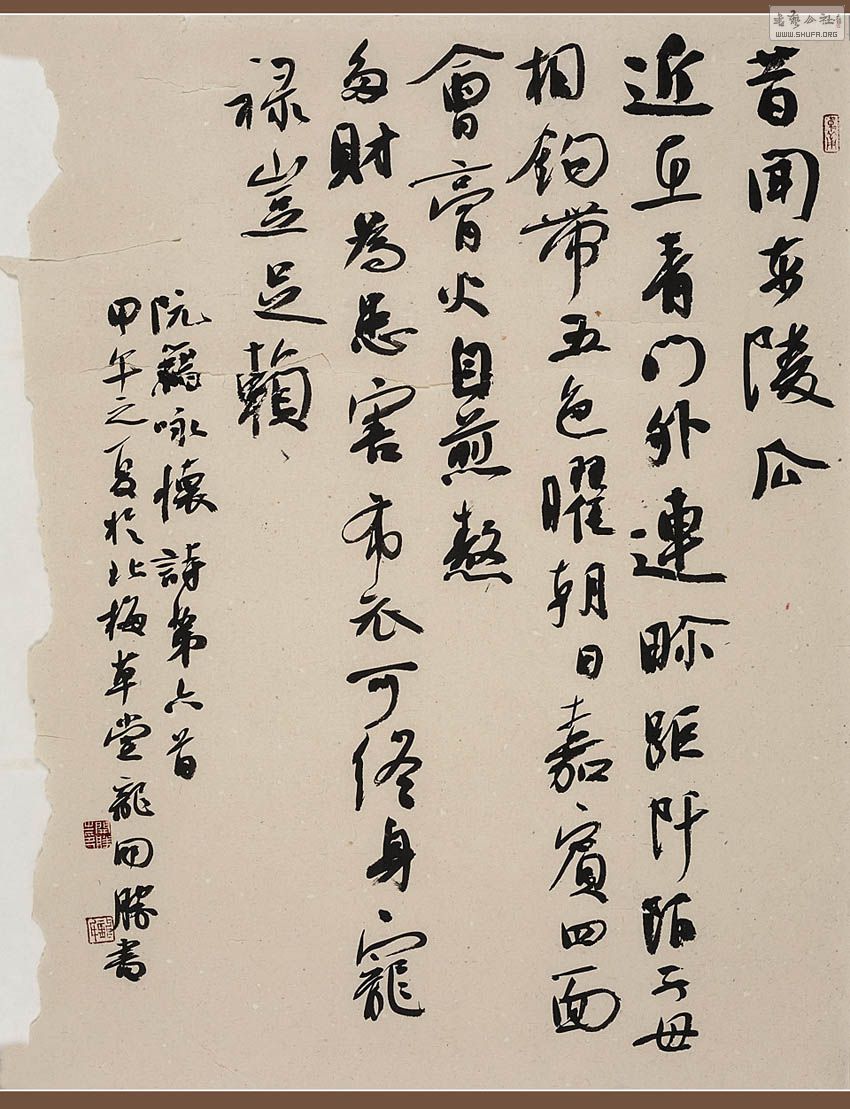 昔聞東陵瓜
近在青門外連畛距阡陌子母
相鈎帶五色曜朝日嘉賓四面
會膏火自煎熬
多財為患害布衣可終身寵
禄豈足賴
阮籍咏懷詩第六首
甲午之夏於北梅草堂龍開勝書
書藝公社
WWW.SHUFA.ORG